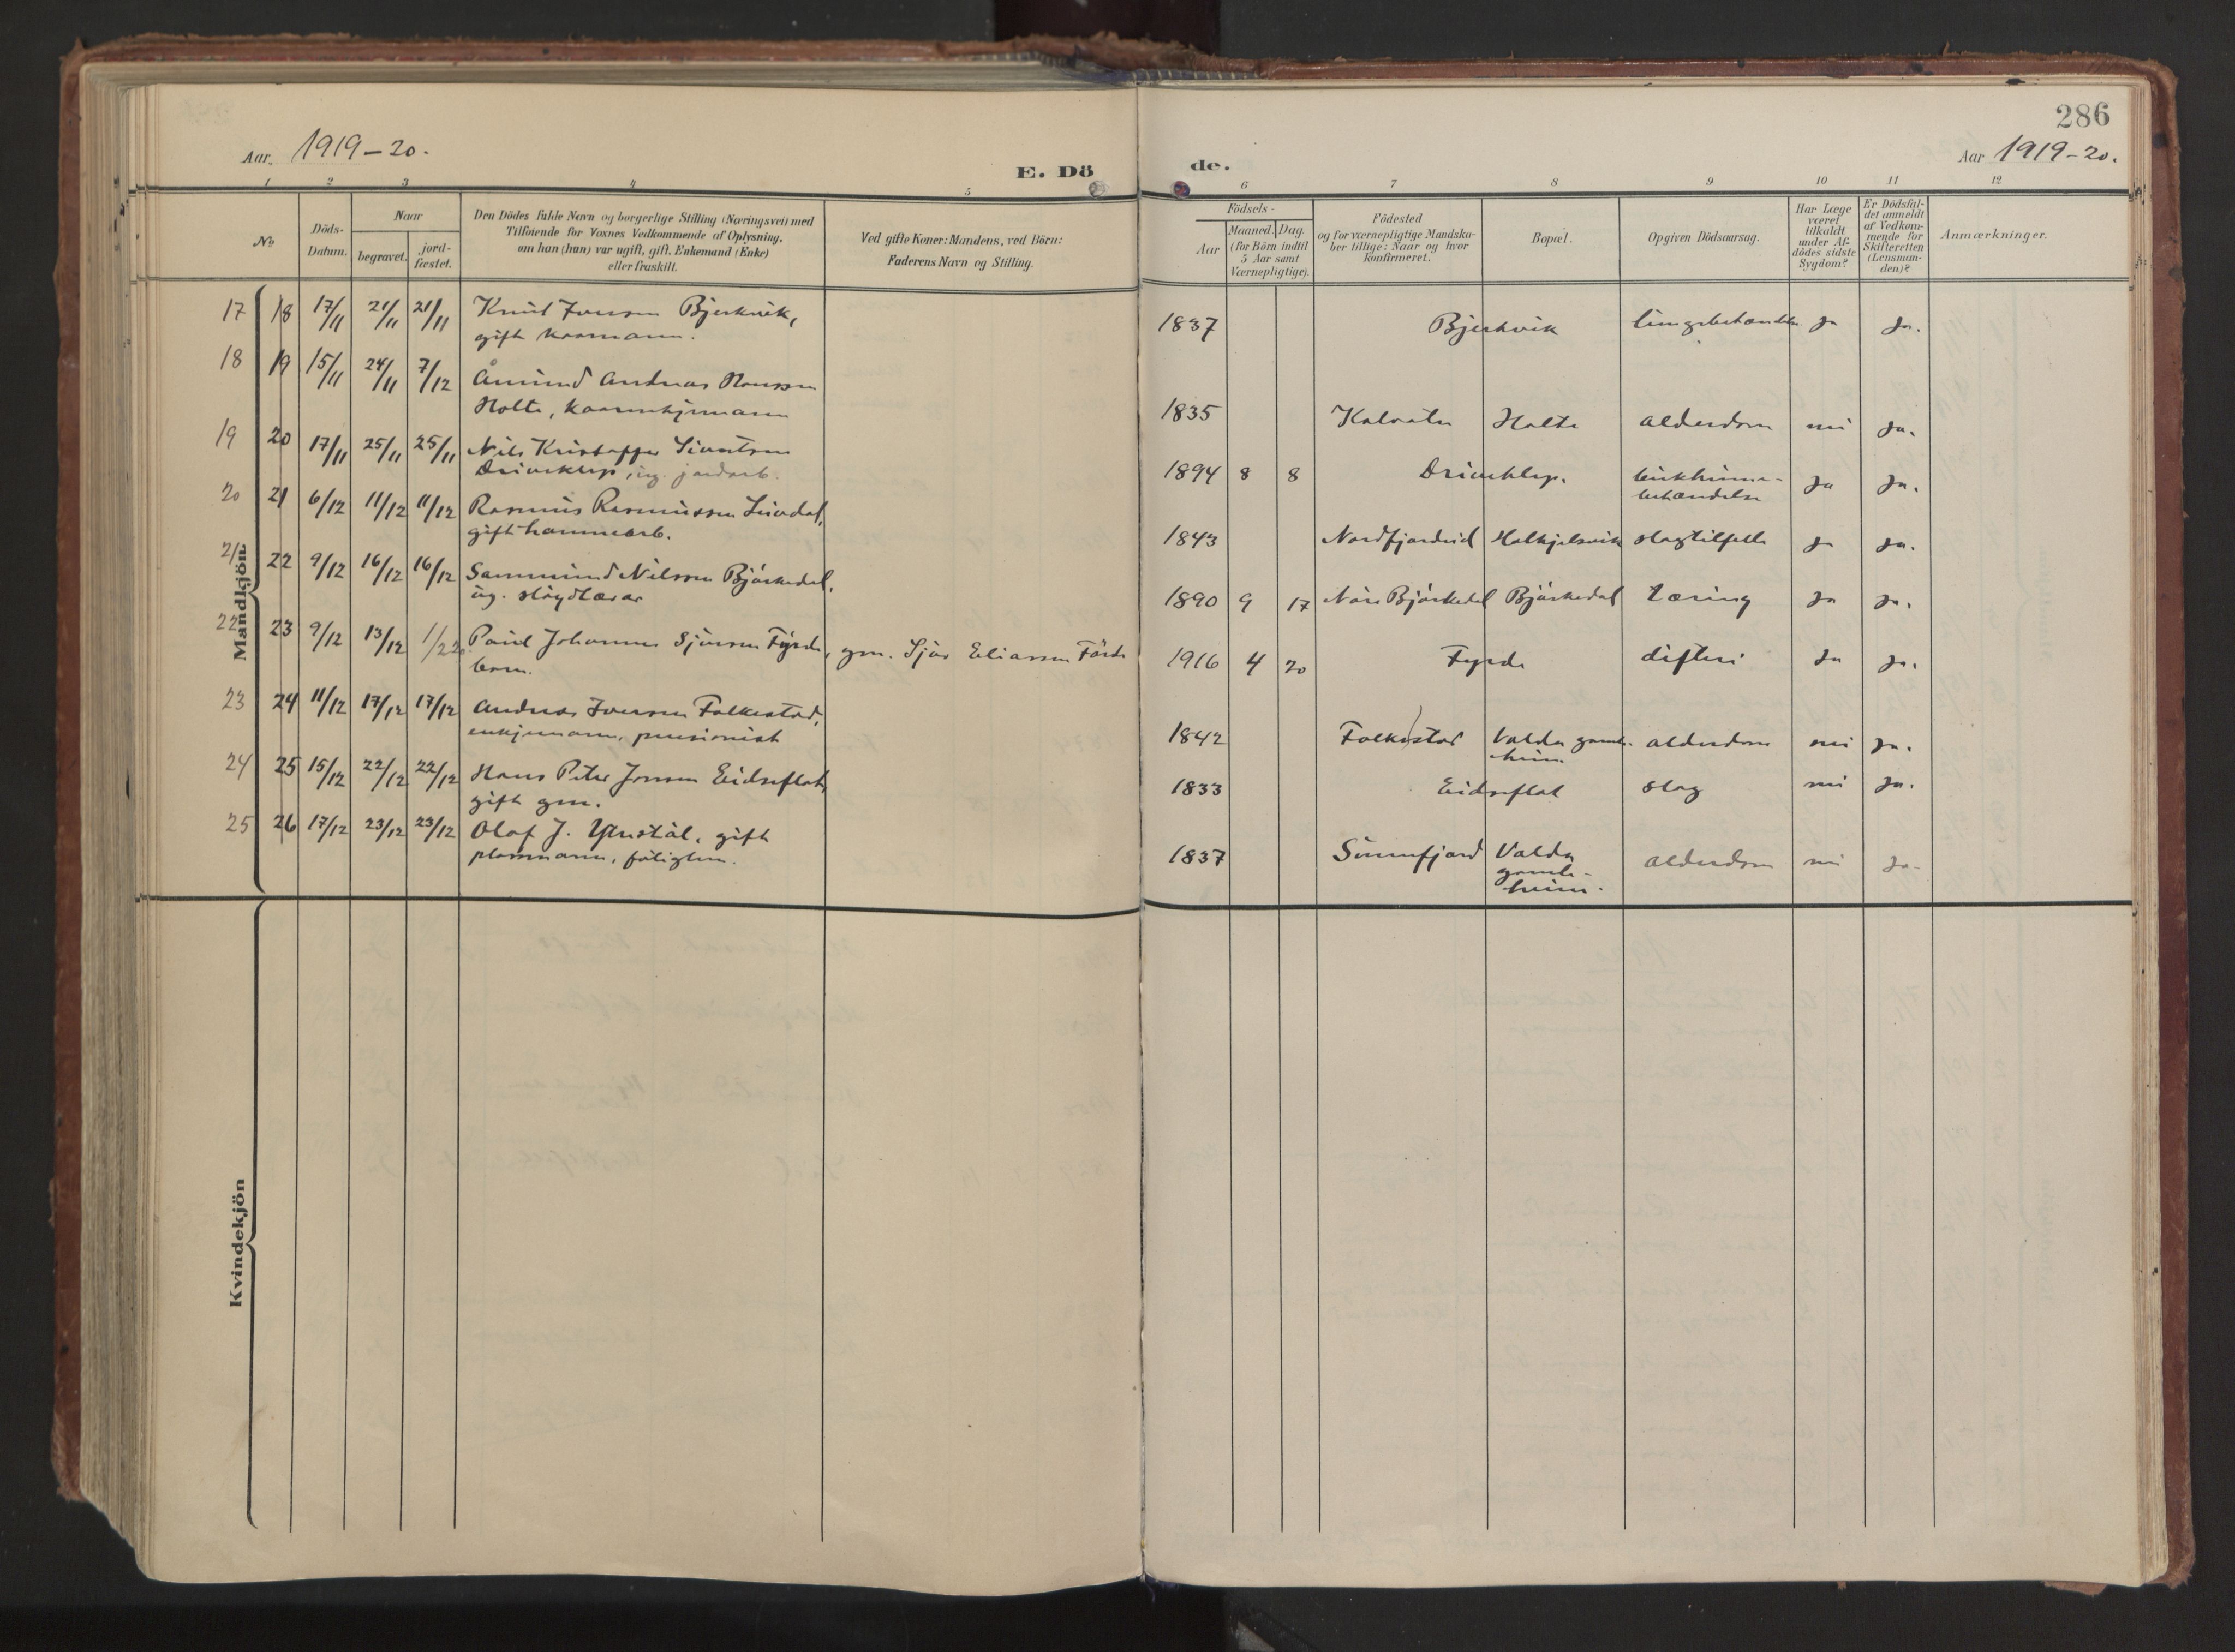 286
Aar. 1919-20.
E. Dö de.
Aar 1919-20.
1 2 3 4 5 6 7 8 9 10 11 12
No
Döds-
Datum.
Naar
begravet.
jord-
fæstet.
Den Dödes fulde Navn og borgerlige Stilling (Næringsvei) med
Tilföiende for Voxnes Vedkommende af Oplysning,
om han (hun) var ugift, gift, Enkemand (Enke)
eller fraskilt.
Ved gifte Koner: Mandens, ved Börn:
Faderens Navn og Stilling.
Födsels-
Aar
Maaned. Dag.
(for Börn indtil
5 Aar samt
Værnepligtige).
Födested
og for værnepligtige Mandska-
ber tillige: Naar og hvor
konfirmeret.
Bopæl.
Opgiven Dödsaarsag.
Har Læge
været
tilkaldt
under Af-
dödes sidste
Sygdom?
Er Dödsfal-
det anmeldt
af Vedkom-
mende for
Skifteretten
(Lensman-
den)?
Anmærkninger.
Mandkjön
17 18 17/11 21/11 21/11 Knut Iversen Bjerkvik,
gift kaarmann.
1837 Bjerkvik ja ja.
18 19 15/11 24/11 7/12 Åmund Andreas Hansen
Holte, kaarenkjemann
1835 Kalvatn Holte alderdom nei ja.
19 20 17/11 25/11 25/11 Nils Kristoffer Sivertsen
Driveklep, ug. jordarb.
1894 8 8 Driveklep. ja ja.
20 21 6/12 11/12 11/12 Rasmus Rasmussen Lindal,
gift
1843 Nordfjordeid Halkjelsvik slagtilfelle ja ja.
21 22 9/12 16/12 16/12 Sammund Nilssen Bjørkedal,
ug. sløydlærar
1890 9 17 Bjørkedal Bjørkedal tæring ja ja.
22 23 9/12 13/12 1/2 20. Paul Johannes Sjursen Fyrde,
barn.
gm. Sjur Eliassen Förde
1916 4 20 Fyrde difteri ja ja.
23 24 11/12 17/12 17/12 Andreas Iversen Folkestad,
enkjemann, pensionist
1842 Folkestad Volda gamle-
heim. alderdom nei ja.
24 25 15/12 22/12 22/12 Hans Peter Jonsen Eidseflot,
gift gm.
1833 Eidseflot slag nei ja.
25 26 17/12 23/12 23/12 Olaf J. gift
plassmann, fatiglem.
1837 Sunnfjord Volda
gamle-
heim. alderdom nei ja.
Kvindekjön